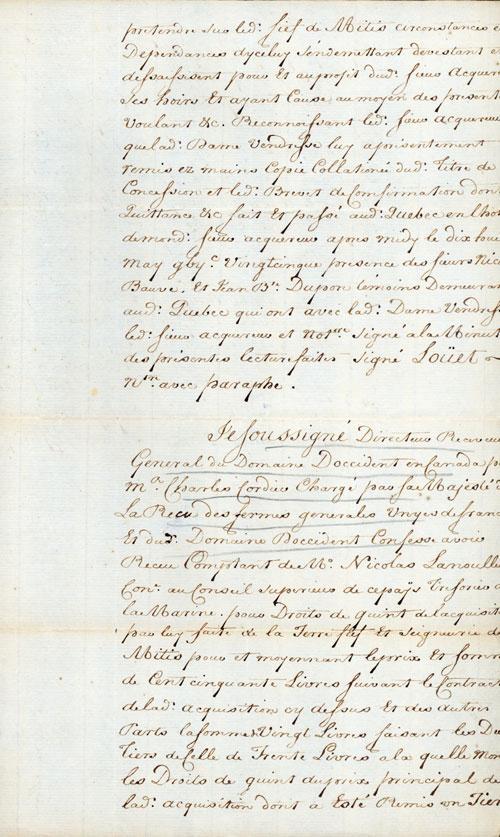 pretendre sus led: fief de Mitis circonstances e
Dependances dyceluy Sendemettant devestant e
dessaisissent pour Et auproffit dud: sieur Acquer
Ses hoirs Et ayant Cause au moyen des present
Voulant &c. Reconnoissant led: sieur acquereur
quelad: Dame Vendresse luy a presentement
remis ez mains Copie Collationée dud: Titre de
Concession et led: Brevet de Confirmation don
Quittance &c fait Et passé aud: Quebec en lho
demond: sieur acquereur apres midy le dix hui
May gby.c Vingtcinq presence des sieurs Nic
Bauve. Et Jean B.te Dupon témoins Demeuran
aud: Quebec qui ont avec lad: Dame Vendress
led: sieur acquereur et Not.re Signé a la Minut
des présentes lecture faites signé Loüet
N.re avec paraphe.
Je soussigné Directeur Receveu
General du Domaine Doccident en Canada p
M.r Charles Cordier Chargé par sa Majesté
La Recu des fermes generales Unyes de franc
Et dud: Domaine Doccident Confesse avoir
Receu Comptant de M.r Nicolas Lanoulle
Con.er au Conseil superieur de ce païs Tresorier d
la Marine pour Droits de quint de lacquisit
par luy faite de la Terre fief et Seigneurie d
Mitis pour et moyennant le prix Et somm
de Cent cinquante Livres suivant le Contract
de lad: acquisition cy dessus Et des autres
Parts la somme Vingt Livres faisant les De
Tiers de Celle de Trente Livres a la quelle Mon
les Droits de quint du prix principal de
lad: acquisition dont a Esté Remis un Tier